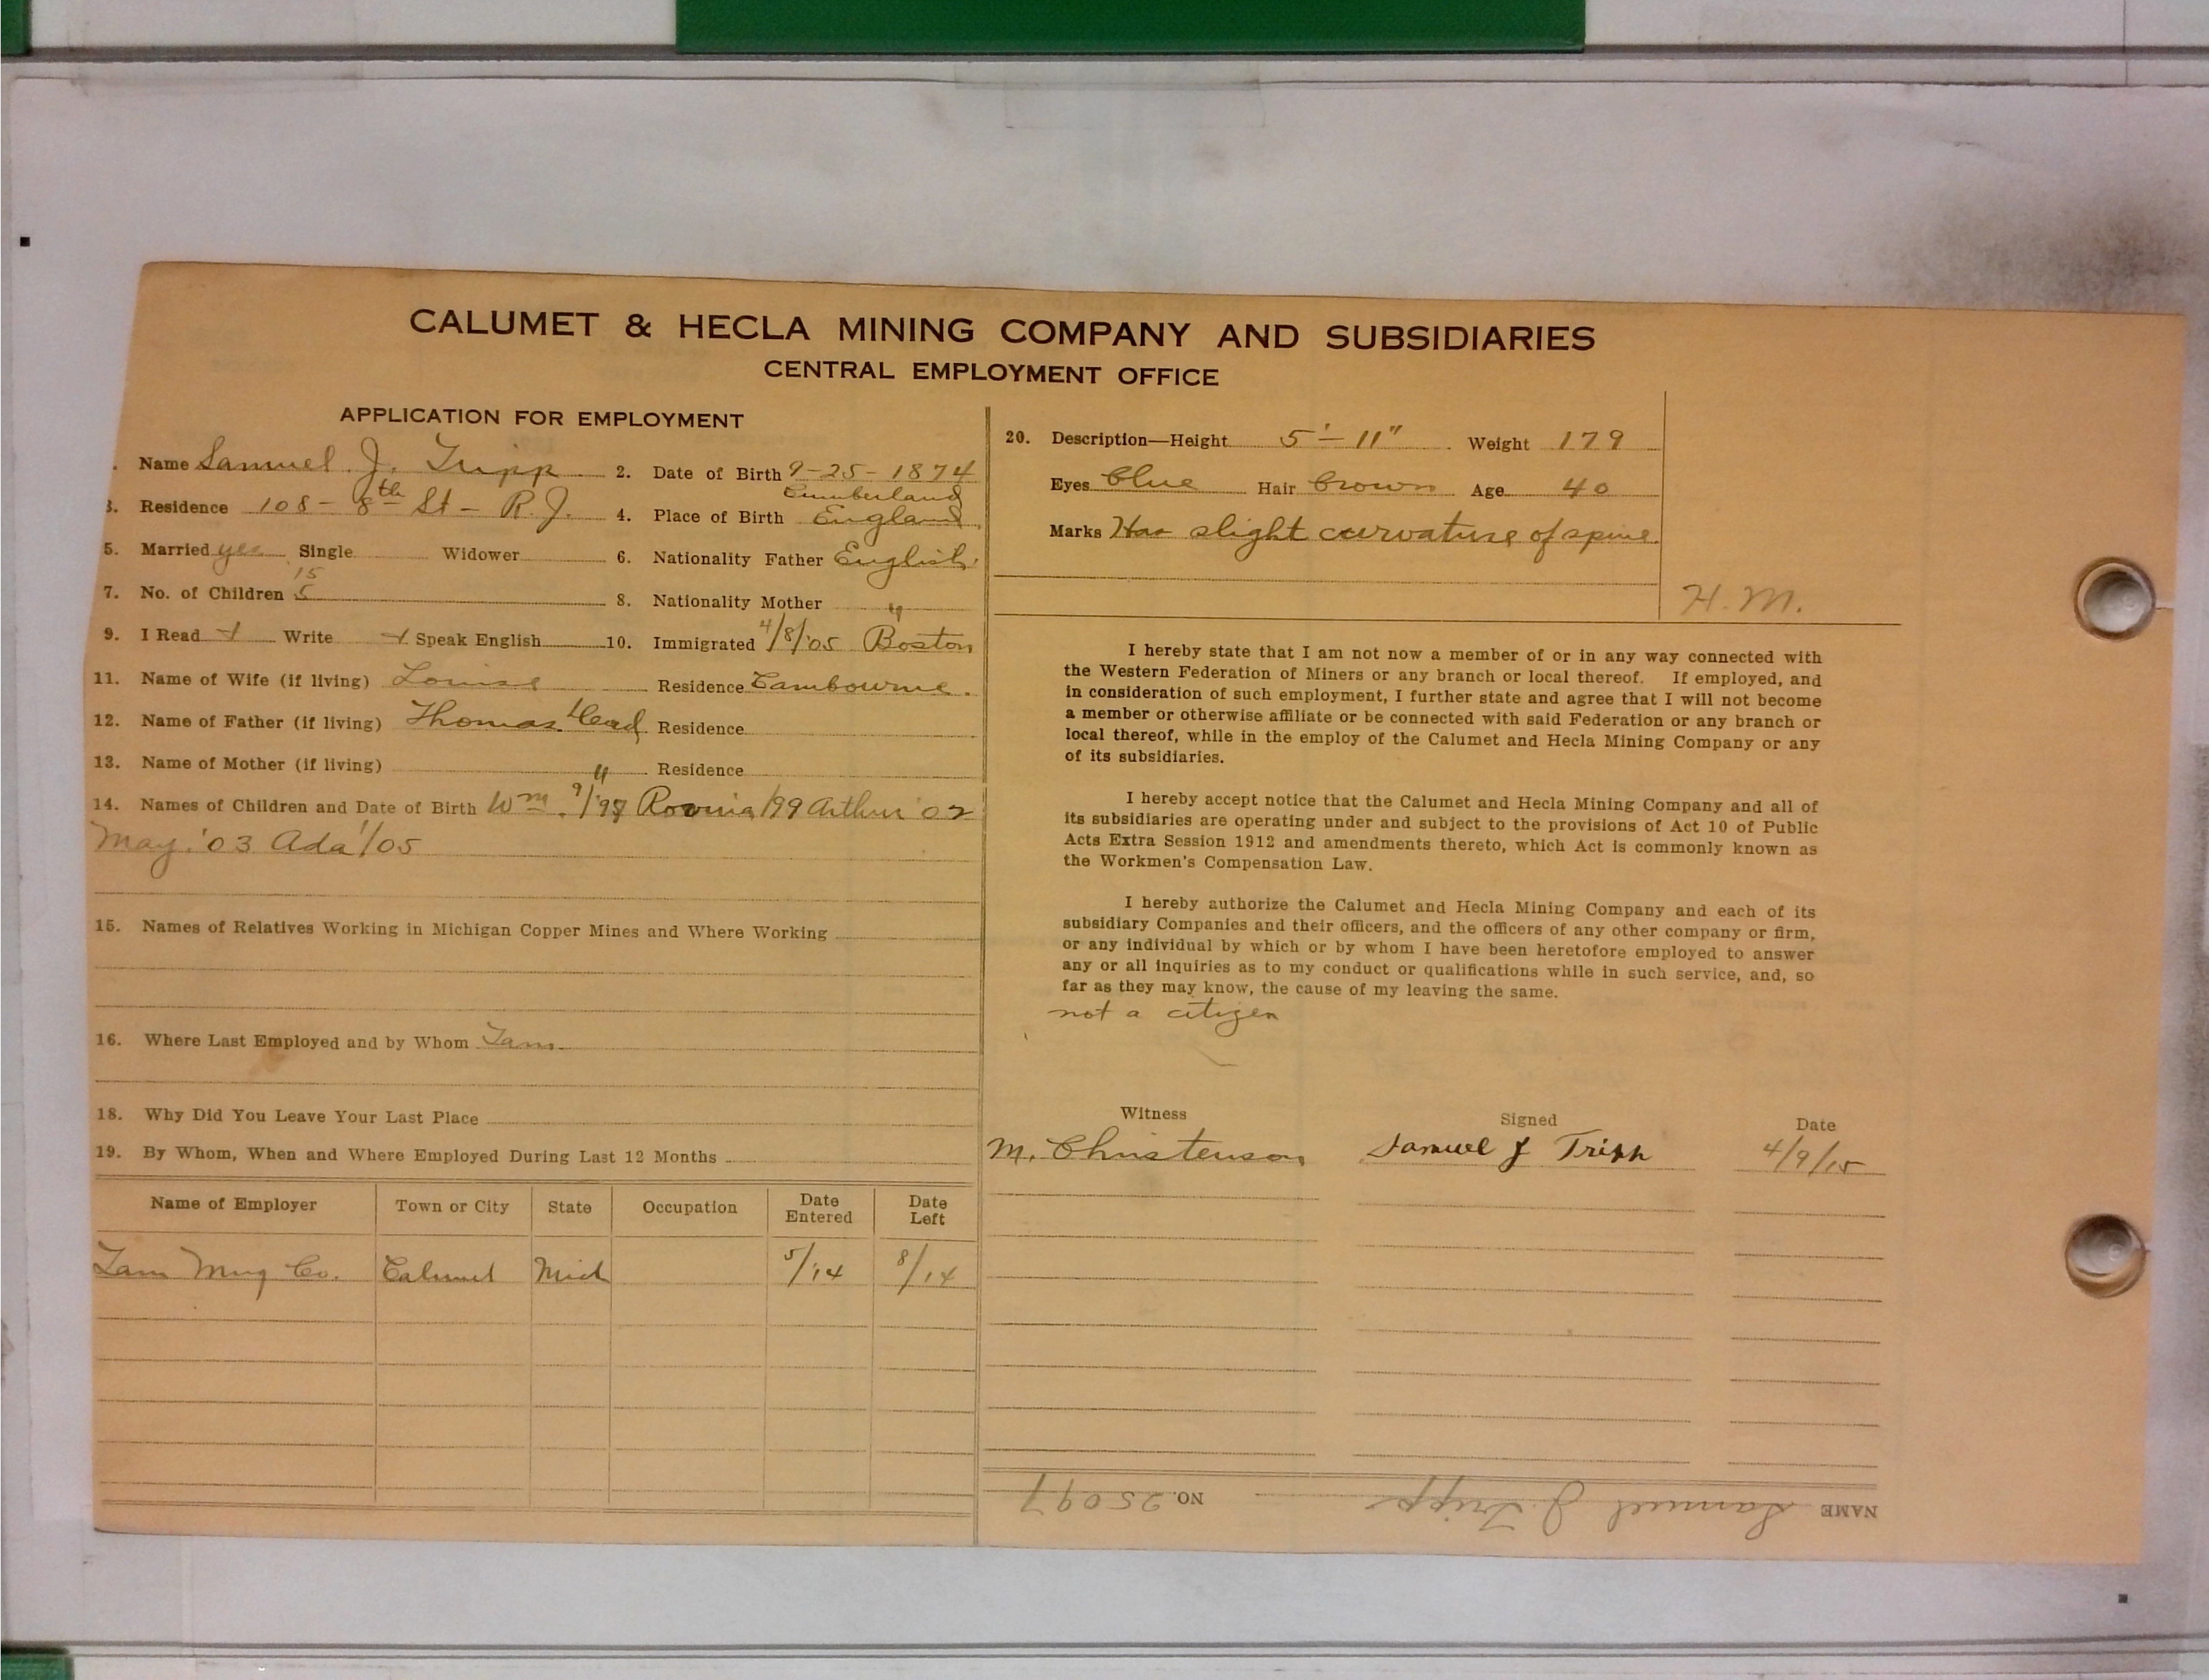 CALUMET & HECLA MINING COMPANY AND SUBSIDIARIES
CENTRAL EMPLOYMENT OFFICE
APPLICATION FOR EMPLOYMENT
. Name Samuel J. Tripp 2. Date of Birth 9-25-1874
3. Residence 108 - 8th St - R.J. 4. Place of Birth Cumberland England
5. Married yes Single Widower 6. Nationality Father English
7. No. of Children 5 15 8. Nationality Mother "
9. I Read Write Speak English 10. Immigrated 4/8/05 Boston
11. Name of Wife (if living) Louise Residence Cambourne.
12. Name of Father (if living) Thomas Dead Residence
13. Name of Mother (if living) " Residence
14. Names of Children and Date of Birth Wm. 9/98 /99 Arthur '02
May '03 Ada 1/05
15. Names of Relatives Working in Michigan Copper Mines and Where Working
16. Where Last Employed and by Whom Tam
18. Why Did You Leave Your Last Place
19. By Whom, When and Where Employed During Last 12 Months
Name of Employer Town or City State Occupation Date Entered Date Left
Tam Mng Co. Calumet Mich 5/14 8/14
20. Description—Height 5'-11" Weight 179
Eyes blue Hair brown Age 40
Marks Has slight curvature of spine
H.M.
I hereby state that I am not now a member of or in any way connected with
the Western Federation of Miners or any branch or local thereof. If employed, and
in consideration of such employment, I further state and agree that I will not become
a member or otherwise affiliate or be connected with said Federation or any branch or
local thereof, while in the employ of the Calumet and Hecla Mining Company or any
of its subsidiaries.
I hereby accept notice that the Calumet and Hecla Mining Company and all of
its subsidiaries are operating under and subject to the provisions of Act 10 of Public
Acts Extra Session 1912 and amendments thereto, which Act is commonly known as
the Workmen's Compensation Law.
I hereby authorize the Calumet and Hecla Mining Company and each of its
subsidiary Companies and their officers, and the officers of any other company or firm,
or any individual by which or by whom I have been heretofore employed to answer
any or all inquiries as to my conduct or qualifications while in such service, and, so
far as they may know, the cause of my leaving the same.
not a citizen
Witness Signed Date
M. Christenson Samuel J Tripp 4/9/15
NAME Samuel J. Tripp NO. 25097